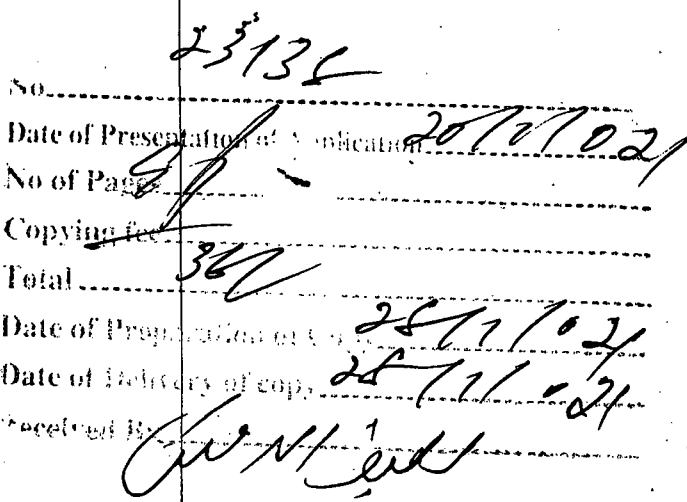 No 23138
Date of Presentation of Application 20/11/021
No of Pages
Copying fee
Total 36/
Date of Preparation of Copy 28/11/021
Date of Delivery of copy 28/11/021
Received By